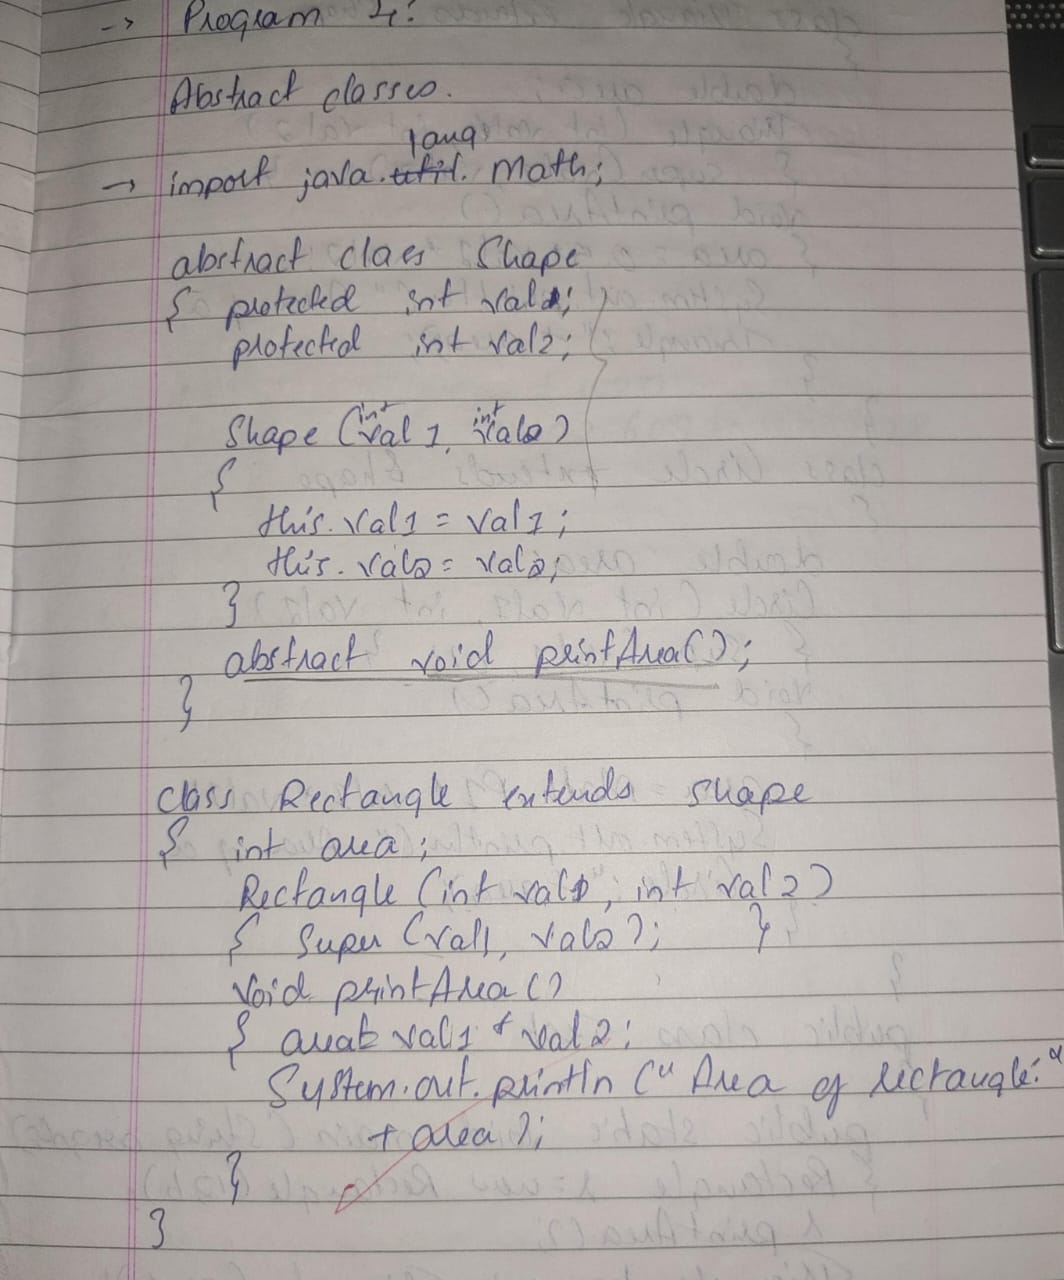 -> Program 4:
Abstract classes.
lang
→ import java.util. Math;
abstract class Shape
{ protected int val1;
protected int val2;
int int
Shape (val 1, val2)
{
this. val1 = val1;
this. val2 = val2;
}
abstract void printArea();
}
class Rectangle extends Shape
{ int area;
Rectangle (int val1, int val2)
{ Super (val1, val2); }
void printArea()
{ area= val1 * val2;
System.out.println (" Area of rectangle: "
+ area);
}
}